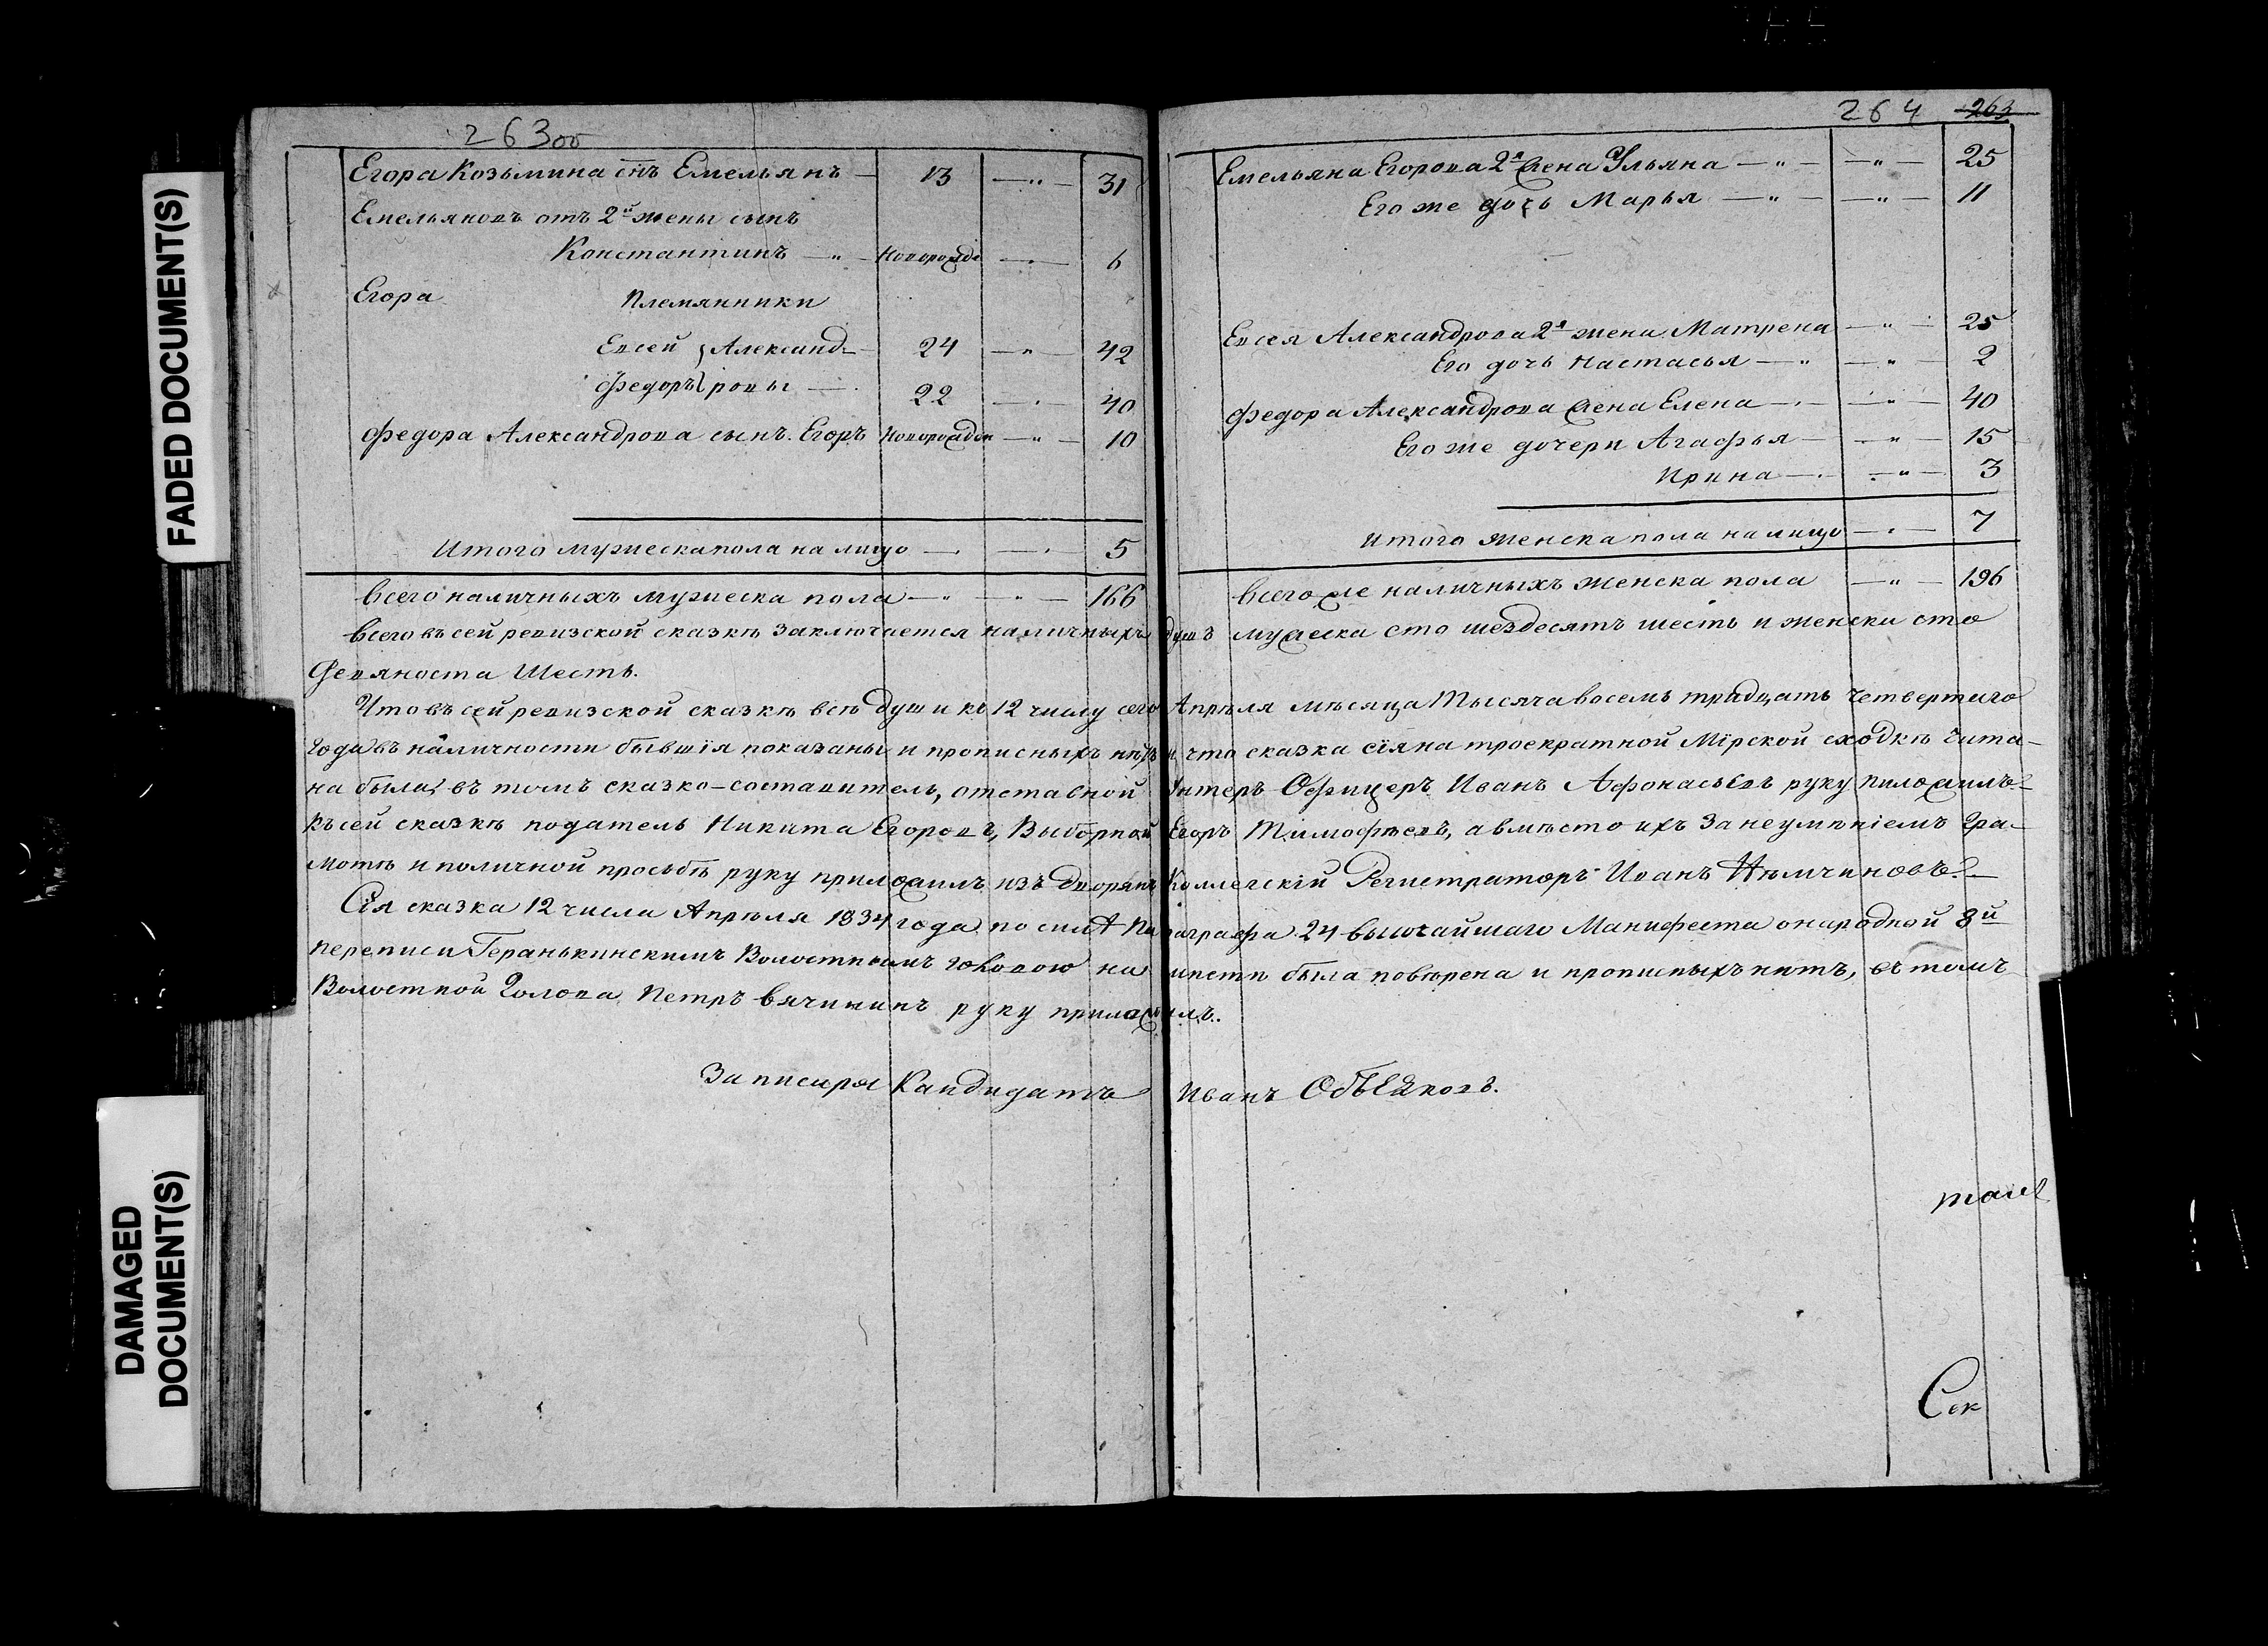 263об
Егора Козьмина сынъ Емельянъ — 13 — „ — 31
Емельяновъ отъ 2й жены сынъ
Константинъ — „ — новорожде — 6
Егора племянники
Евсей } Александ- 24 — „ — 42
Федоръ } ровы — 22 — 40
Федора Александрова сынъ Егоръ новорожден — „ — 10
Итого мужеска пола на лицо — 5
Всего наличныхъ мужеска пола — „ — „ — 166
264 263
Емельяна Егорова 2я жена Ульяна — „ — „ — 25
Его же дочь Марья — „ — „ — 11
Евсея Александрова 2я жена Матрена — „ — 25
Его дочь Настасья — „ — „ — 2
Федора Александрова жена Елена — „ — 40
Его же дочери Агафья — „ — 15
Ирина — „ — 3
Итого женска пола на лицо — 7
Всего же наличныхъ женска пола — „ — 196
Всего въ сей ревизской сказкѣ заключается наличныхъ душъ мужеска сто шездесятъ шесть и женска сто
Девяноста шесть.
Что въ сей ревизской сказкѣ всѣ души къ 12 числу сего Апрѣля мѣсяца тысяча восемь тридцать четвертаго
года въ наличности бывшія показаны и прописныхъ нѣтъ и что сказка сія на троекратной Мірской сходкѣ чита-
на была, въ томъ сказко-составитель, отставной Унтеръ Офицеръ Иванъ Афонасьевъ руку приложилъ
Къ сей сказкѣ податель Никита Егоровъ, Выборной Егоръ Тимофѣевъ, а вмѣсто ихъ за неумѣніемъ Гра-
мотѣ и по личной прозьбѣ руку приложилъ изъ Дворянъ Коллежскій Регистраторъ Иванъ Нѣмчиновъ.
Сія сказка 12 числа Апрѣля 1834 года по силѣ параграфа 24 высочайшаго Манифеста о народной 8й
переписи Геранькинскимъ Волостнымъ головою на мѣстѣ была повѣрена и прописныхъ нѣтъ, въ томъ
Волостной Голова Петръ Вячикинъ руку приложилъ.
За писаря Кандидатъ Иванъ Объедковъ.
Сек
FADED DOCUMENT(S)
DAMAGED
DOCUMENT(S)